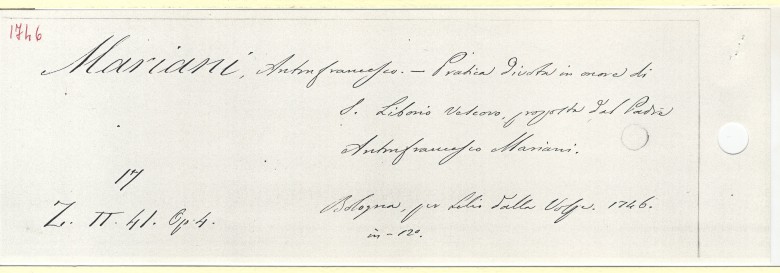 1746
Mariani, Antonfrancesco. – Pratica divota in onore di
S. Liborio Vescovo, proposta dal Padre
Antonfrancesco Mariani.
17
Z. II. 41. Op. 4.
Bologna, per Lelio dalla Volpe. 1746.
in-12o.